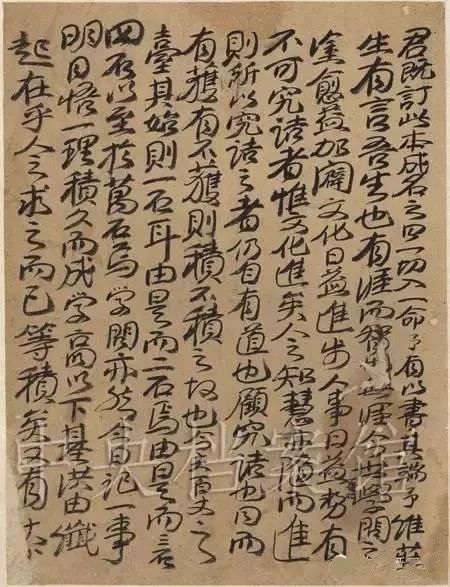 君既訂此本成名之曰一切入一命予有以書其端予維莊
生有言吾生也有涯而知也無涯今世學問之
塗愈益加闢文化日益進步人事日益勢有
不可究詰者惟文化進矣人之智慧亦隨而進
則所以究詰之者仍自有道也顧究詰也同而
有獲有不獲則積不積之故也今夫百丈之
臺其始則一石耳由是而二石焉由是而三石
四石以至於萬石焉學問亦然今日記一事
明日悟一理積久而成學高以下基洪由纖
起在乎人之求之而已等積矣又有大
中央档案馆